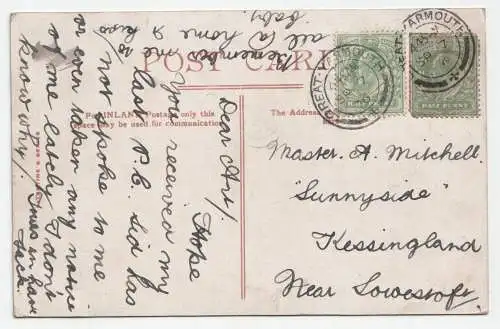 POST CARD
For INLAND Postage only this
space may be used for communication.
The Address
Dear Art/
Hope
you received my
last P.C. Sid has
not spoke to me
or even taken any notice
of me lately I dont
know why. Yours in haste
Jack.
Remember me to
all (a home & kiss
baby.
Master. A. Mitchell.
"Sunnyside"
Kessingland
Near Lowestoft.
GREAT-YARMOUTH
GREAT-YARMOUTH
HALF PENNY
HALF PENNY